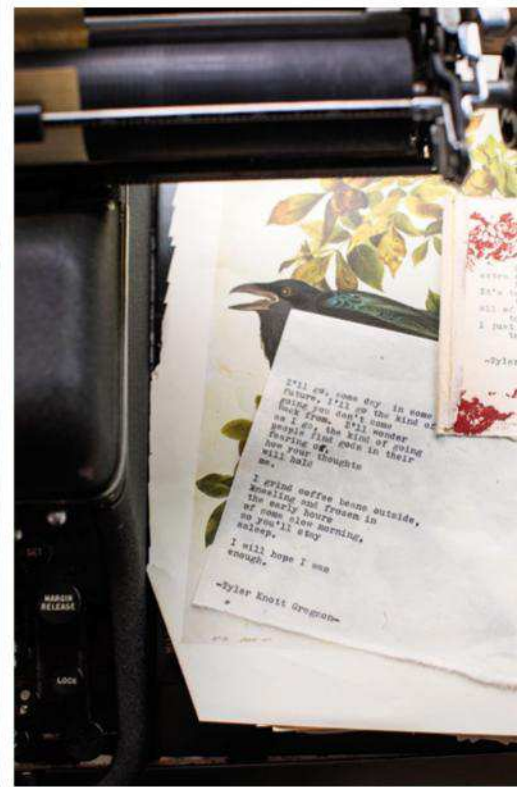 I'll go, some day in some
future, I'll go the kind of
going you don't come
back from. I'll wonder
as I go, the kind of going
people find gods in their
fearing of,
how your thoughts
will hold
me.
I grind coffee beans outside,
kneeling and frozen in
the early hours
of some slow morning,
so you'll stay
asleep.
I will hope I was
enough.
-Tyler Knott Gregson-
extra
It's
all of
I just
-Tyler
SET
MARGIN
RELEASE
LOCK